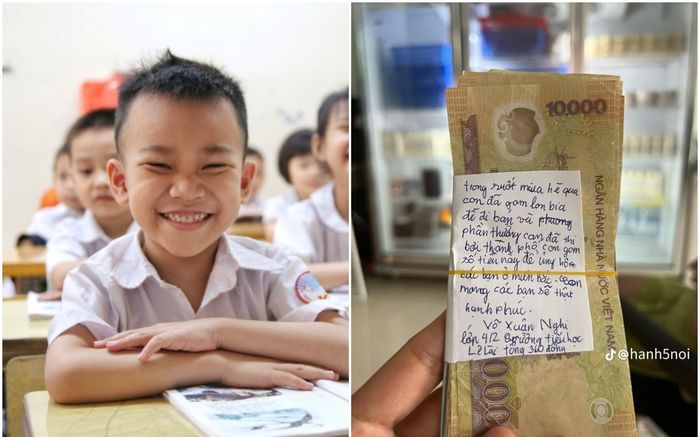 10.000
NGÂN HÀNG NHÀ NƯỚC VIỆT NAM
trong suốt mùa hè qua
con đã gom lon bia
để đi bán và phương
phần thưởng con đã thi
bơi thành phố con gom
số tiền này để ủng hộ
các bạn ở miền bắc. con
mong các bạn sẽ thật
hạnh phúc.
Võ Xuân Nghi
lớp 4/2 trường tiểu học
Lê Lai tổng 360 đồng
@hanh5noi